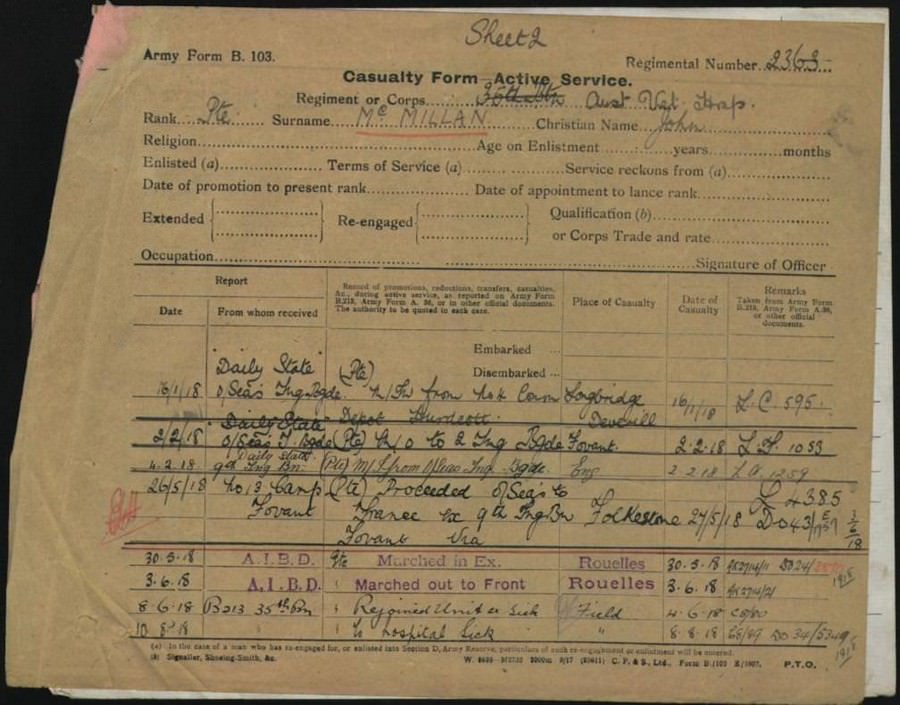 Sheet 2
Army Form B. 103.
Regimental Number 2363
Casualty Form—Active Service.
Regiment or Corps 35th Btn Aust
Rank Pte Surname Mc MILLAN Christian Name John
Religion Age on Enlistment years months
Enlisted (a) Terms of Service (a) Service reckons from (a)
Date of promotion to present rank Date of appointment to lance rank
Extended Re-engaged Qualification (b)
or Corps Trade and rate
Occupation Signature of Officer
Report Record of promotions, reductions, transfers, casualties, &c., during active service, as reported on Army Form B.213, Army Form A. 36, or in other official documents. The authority to be quoted in each case. Place of Casualty Date of Casualty Remarks Taken from Army Form B.213, Army Form A.36, or other official documents.
Date From whom received
Embarked
Daily State (Pte) Disembarked
16/1/18 o/Seas Tng Bgde. from No 4 Comm Longbridge 16/1/18 L.C. 595
Daily State Depot Hurdcott. Deverill
2/2/18 o/Seas T. Bgde (Pte) to 2 Tng Bgde Fovant. 2.2.18 1053
Daily State
4.2.18 9th Tng Bn. (Pte) M/I from O/Seas Tng. Bgde. Eng 2 2 18 1259
26/5/18 No 13 Camp (Pte) Proceeded o/Seas to 4385
Fovant France ex 9th Tng Bn Folkestone 27/5/18 DO43
Fovant Via
30.5.18 A.I.B.D. Pte Marched in Ex. Rouelles 30.5.18
3.6.18 A.I.B.D. " Marched out to Front Rouelles 3.6.18
8.6.18 B213 35th Bn " Rejoined Unit ex Sick Field 4.6.18
10 8 18 " to Hospital Sick " 8.8.18 DO34
(a) In the case of a man who has re-engaged for, or enlisted into Section D, Army Reserve, particulars of such re-engagement or enlistment will be entered.
(b) Signaller, Shoeing-Smith, &c. C. P. & S., Ltd. P.T.O.